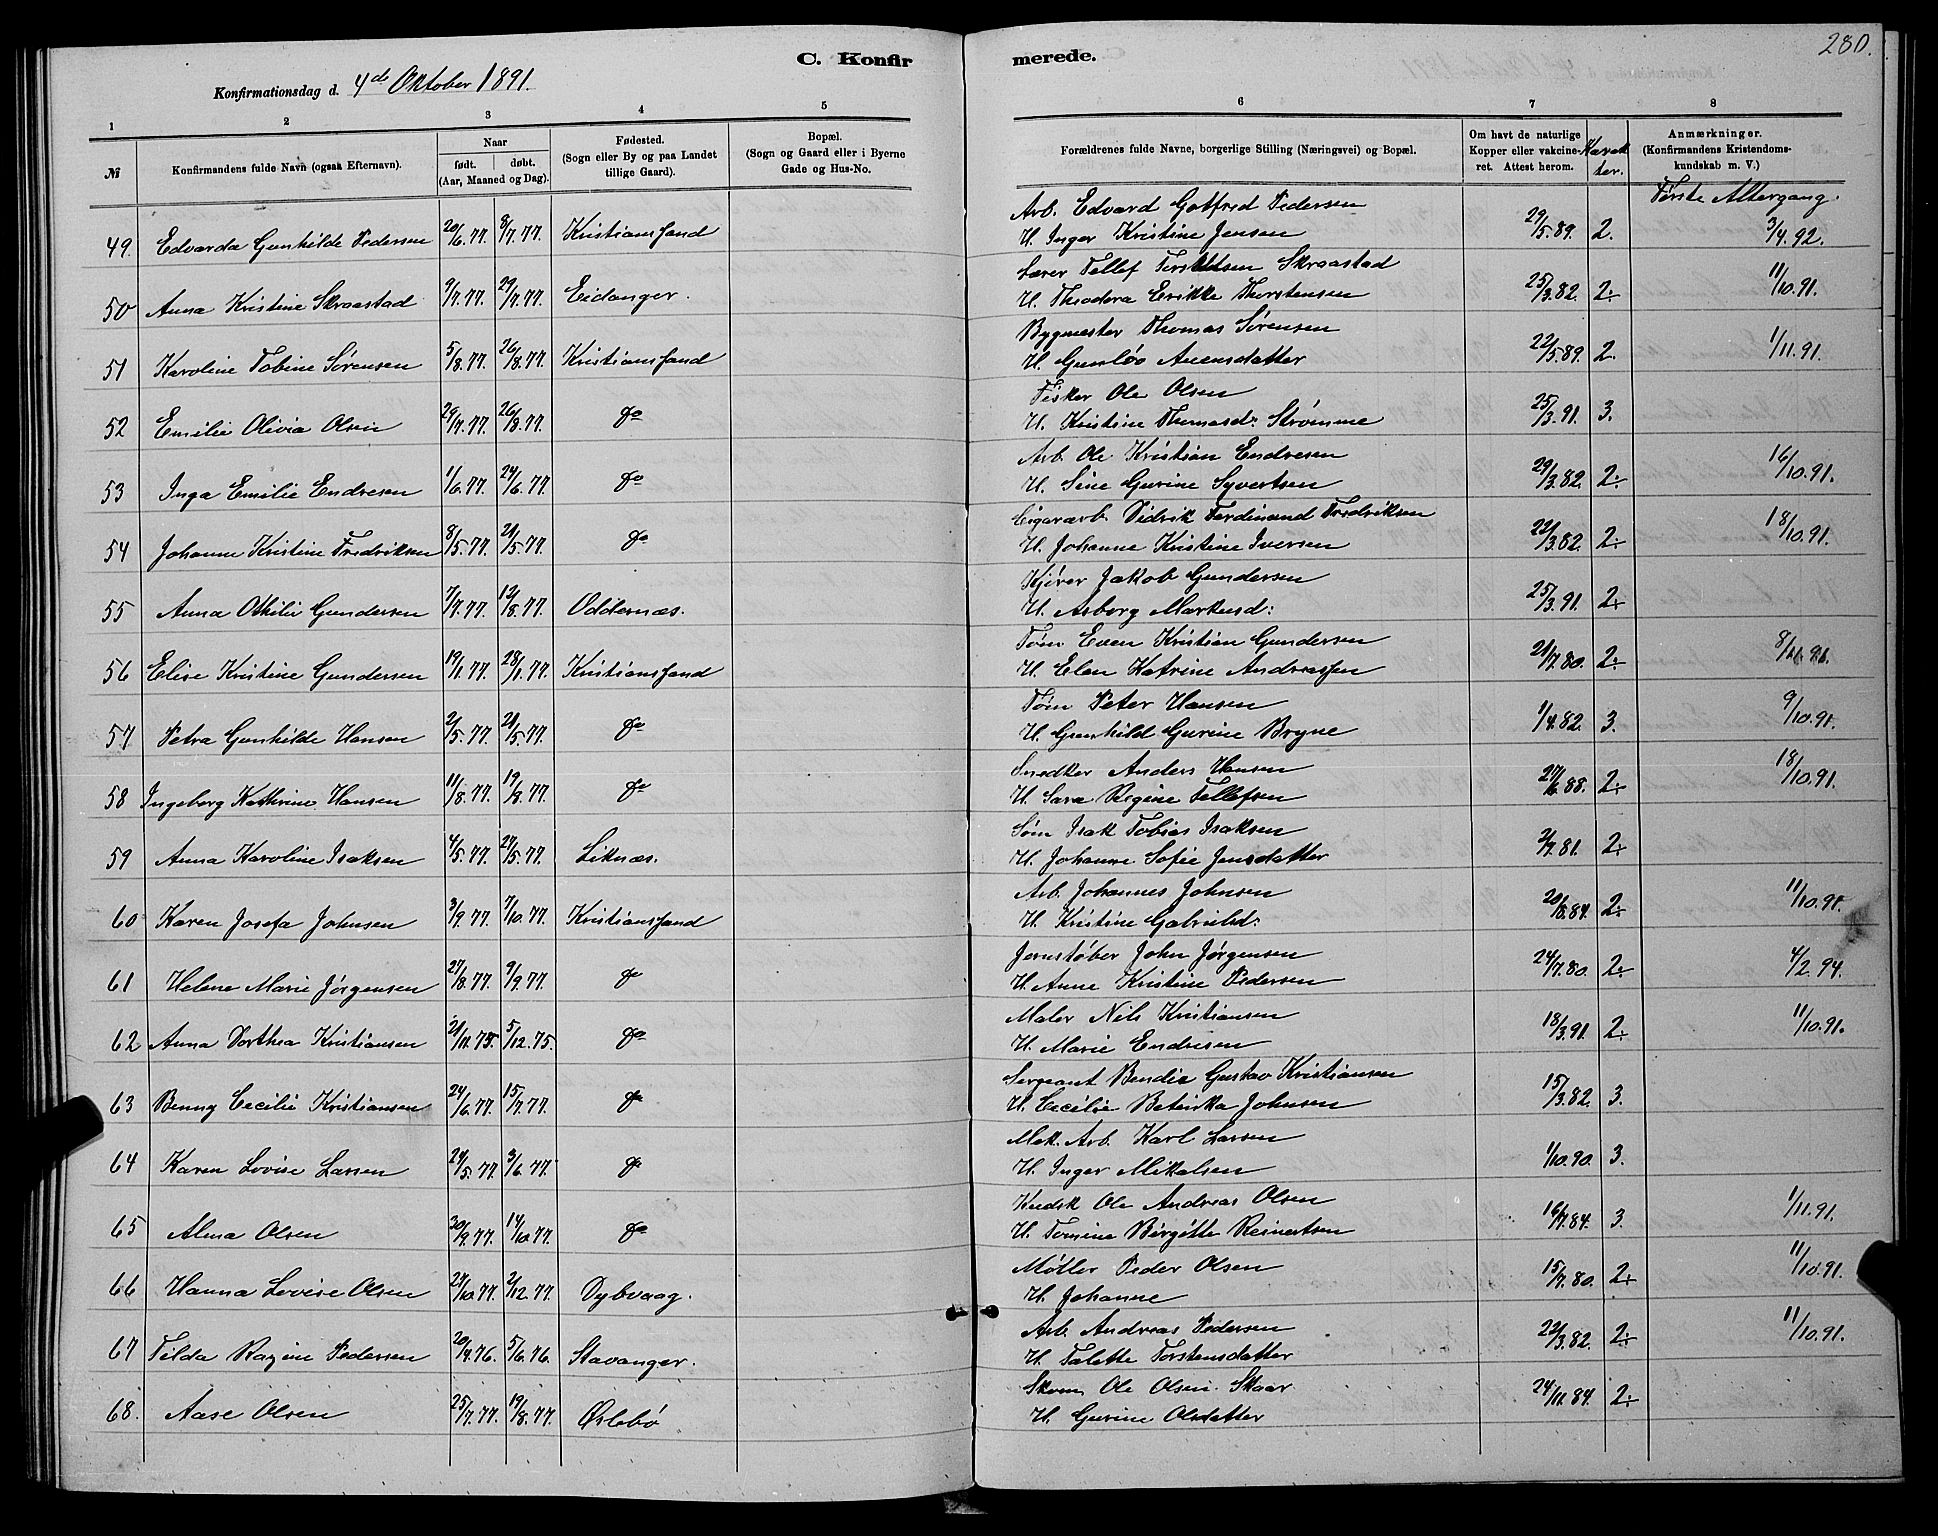 280.
C. Konfirmerede.
Konfirmationsdag d. 4de Oktober 1891.
1 2 3 4 5 6 7 8
№ Konfirmandens fulde Navn (ogsaa Efternavn). Naar født. døbt. (Aar, Maaned og Dag). Fødested. (Sogn eller By og paa Landet tillige Gaard). Bopæl. (Sogn og Gaard eller i Byerne Gade og Hus-No. Forældrenes fulde Navne, borgerlige Stilling (Næringsvei) og Bopæl. Om havt de naturlige Kopper eller vakcineret. Attest herom. Karakter. Anmærkninger. (Konfirmandens Kristendomskundskab m. V.)
Første Altergang.
Arb. Edvard Gotfred Pedersen
49. Edvarda Gunhilde Pedersen 20/6.77. 8/7.77. Kristianssand H. Inger Kristine Jensen 29/5.89. 2. 3/4.92.
Lærer Tellef Terkelsen Skraastad
50 Anna Kristine Skraastad 9/7.77. 29/7.77. Eidanger. H. Theodora Erikke Thorstensen 25/3.82. 2. 11/10.91.
Bygmester Thomas Sørensen
51 Karoline Tobine Sørensen 5/8.77. 26/8.77. Kristianssand H. Gunløv Auensdatter 22/5.89. 2. 1/11.91.
Fisker Ole Olsen
52 Emilie Olivia Olsen 29/7.77. 26/8.77. do H. Kristine Thomasd. Strømme 25/3.91. 3.
Arb. Ole Kristian Endresen
53 Inga Emilie Endresen 1/6.77. 24/6.77. do H. Sine Gurine Syvertsen 29/3.82. 2. 16/10.91.
Cigararb. Didrik Ferdinand Fredriksen
54 Johanne Kristine Fredriksen 8/5.77. 21/5.77. do H. Johanne Kristine Iversen 22/3.82. 2. 18/10.91.
Kjører Jakob Gundersen
55 Anna Othilie Gundersen 7/7.77. 12/8.77. Oddernæs. H. Asborg Markusd: 25/3.91. 2.
Tøm Even Kristian Gundersen
56 Elise Kristine Gundersen 19/1.77. 28/1.77. Kristianssand H. Elen Katrine Andreassen 21/7.80. 2. 8/11.91.
Tøm Peter Hansen
57 Petra Gunhilde Hansen 2/5.77. 21/5.77. do H. Gunhild Gurine Bryne 1/4.82. 3. 9/10.91.
Snedker Anders Hansen
58 Ingeborg Kathrine Hansen 11/8.77. 19/8.77. do H. Sara Regine Tellefsen 27/6.88. 2. 18/10.91.
Søm Isak Tobias Isaksen
59 Anna Karoline Isaksen 4/5.77. 27/5.77. Liknæs. H. Johanne Sofie Jensdatter 2/9.81. 2.
Arb. Johannes Johnsen
60 Karen Josefa Johnsen 3/9.77. 7/10.77. Kristianssand H. Kristine Gabrielsd: 20/8.84. 2. 11/10.91.
Jernstøber John Jørgensen
61 Helene Marie Jørgensen 27/8.77. 9/9.77. do H. Anne Kristine Pedersen 24/7.80. 2. 4/2.94.
Maler Nils Kristiansen
62 Anna Dorthea Kristiansen 21/11.75. 5/12.75. do H. Marie Endresen 18/3.91. 2. 11/10.91.
Sergeant Bendix Gustav Kristiansen
63 Benny Cecilie Kristiansen 24/6.77. 15/7.77. do H. Cecilie Betinka Johnsen 15/3.82. 3.
Mek. Arb. Karl Larsen
64 Karen Lovise Larsen 24/5.77. 3/6.77. do H. Inger Mikalsen 1/10.90. 3.
Kudsk Ole Andreas Olsen
65 Alma Olsen 30/9.77. 14/10.77. do H. Tomine Birgitte Reinertsen 16/7.84. 3. 1/11.91.
Møller Peder Olsen
66 Hanna Lovise Olsen 27/10.77. 2/12.77. Dybvaag. H. Johanne 15/7.80. 2. 11/10.91.
Arb. Andreas Pedersen
67 Tilda Ragine Pedersen 20/4.76. 5/6.76. Stavanger. H. Talette Torstensdatter 22/3.82. 2. 11/10.91.
Skom. Ole Olsen Skaar
68. Aase Olsen 25/7.77. 19/8.77. Øslebø H. Gurine Olsdatter 24/11.84. 2.